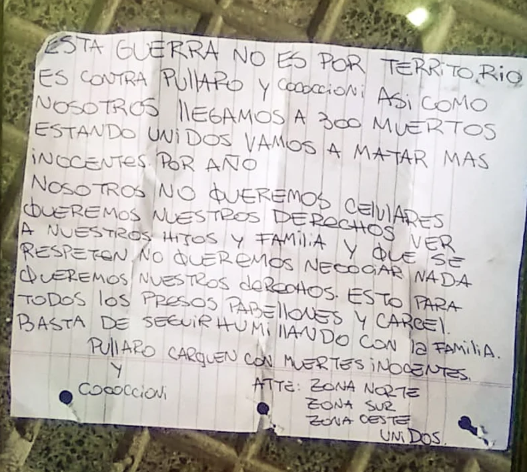 ESTA GUERRA NO ES POR TERRITORIO
ES CONTRA PULLARO Y COCOCCIONI ASI COMO
NOSOTROS LLEGAMOS A 300 MUERTOS
ESTANDO UNIDOS VAMOS A MATAR MAS
INOCENTES POR AÑO
NOSOTROS NO QUEREMOS CELULARES
QUEREMOS NUESTROS DERECHOS VER
A NUESTROS HIJOS Y FAMILIA Y QUE SE
RESPETEN NO QUEREMOS NEGOCIAR NADA
QUEREMOS NUESTROS DERECHOS. ESTO PARA
TODOS LOS PRESOS PABELLONES Y CARCEL.
BASTA DE SEGUIR HUMILLANDO CON LA FAMILIA.
PULLARO CARGUEN CON MUERTES INOCENTES.
Y
COCOCCIONI
ATTE: ZONA NORTE
ZONA SUR
ZONA OESTE
UNIDOS.